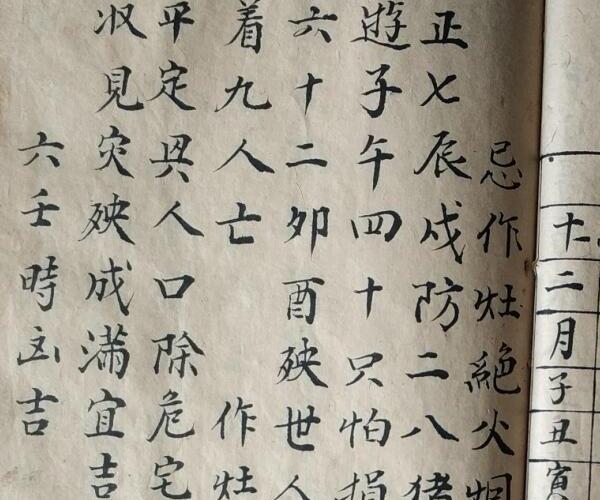 十二月子丑寅
忌作灶絶火烟
正七辰戌防二八猪
遊子午四十只怕損
六十二卯酉殃世人
着九人亡 作灶
平定㒷人口除危宅
収見灾殃成滿宜吉
六壬時凶吉